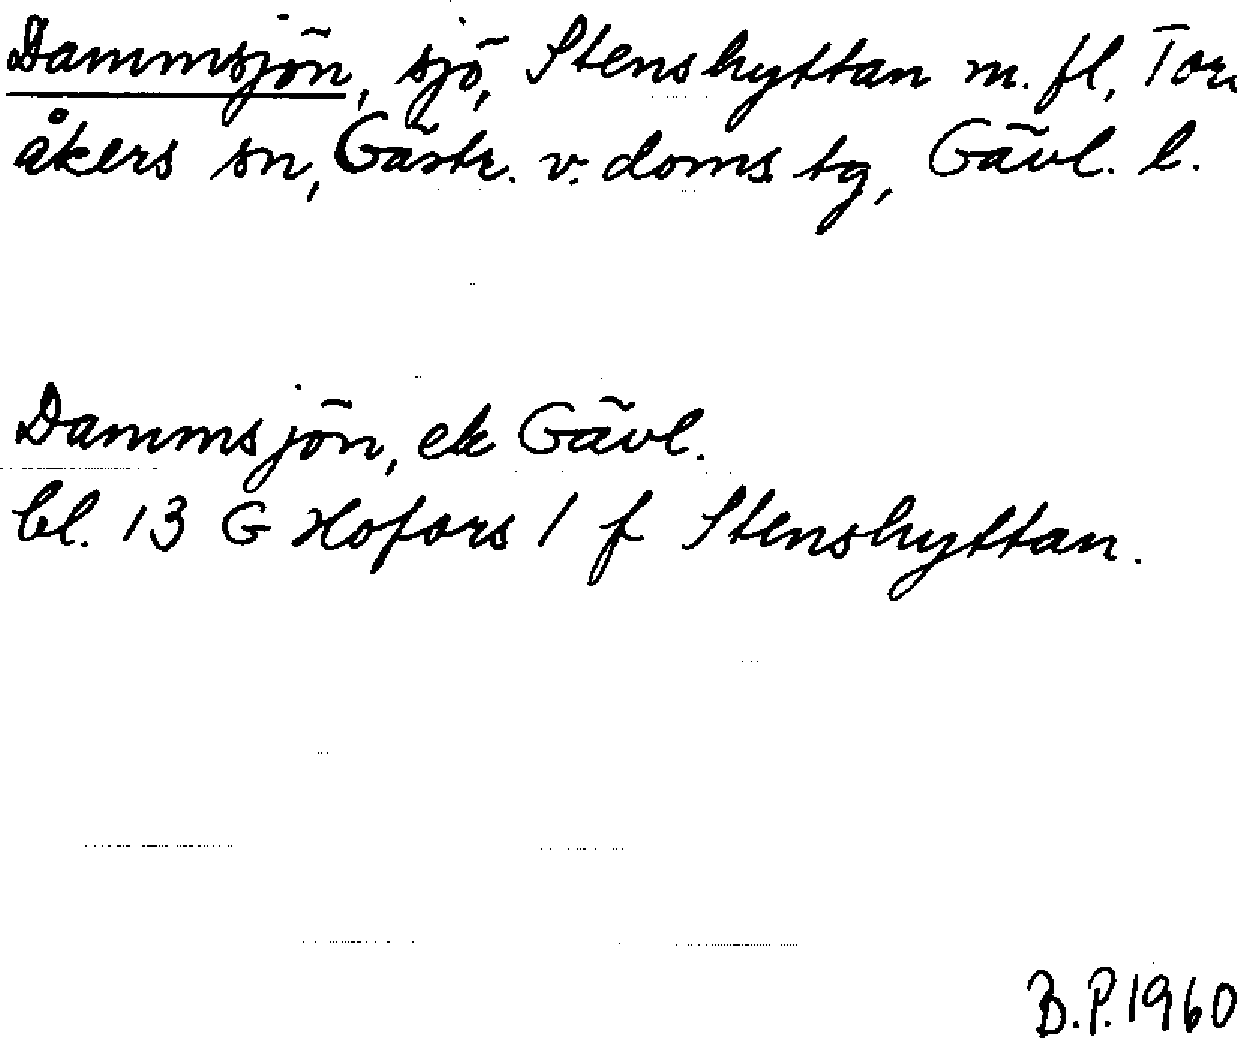 Dammsjön, sjö, Stenshyttan m. fl, Tor
åkers sn, Gästr. v. doms tg, Gävl. l.
Dammsjön, ek Gävl.
bl. 13 G Hofors 1 f Stenshyttan.
B.P. 1960